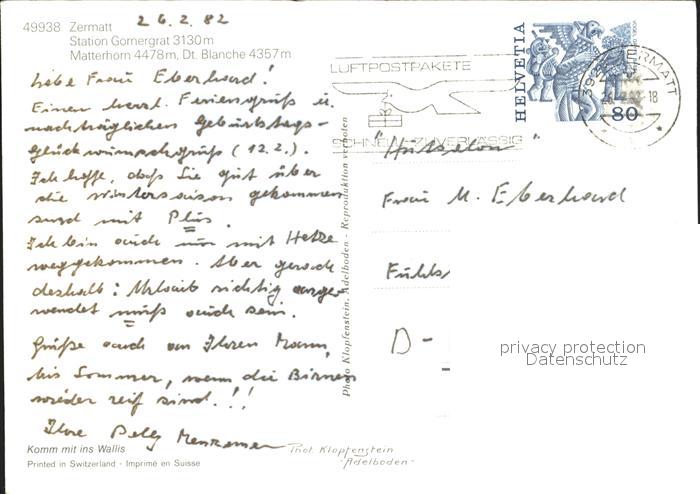 26.2.82
49938 Zermatt
Station Gornergrat 3130 m
Matterhorn 4478 m, Dt. Blanche 4357 m
Liebe Frau Eberhard!
Einen herzl. Feriengruß u.
nachträglichen Geburtstags-
glückwunschgruß (12.2.).
Ich hoffe, daß Sie gut über
die Wintersaison gekommen
sind mit Plus.
Ich bin auch nur mit Hetze
weggekommen. Aber gerade
deshalb: Urlaub richtig ange-
wendet muß auch sein.
Grüße auch an Ihren Mann,
bis Sommer, wenn die Birnen
wieder reif sind.!!
Ihre
Komm mit ins Wallis
Printed in Switzerland - Imprimé en Suisse
Phot. Klopfenstein
-Adelboden-
Photo Klopfenstein, Adelboden - Reproduktion verboten
LUFTPOSTPAKETE
SCHNELL ZUVERLÄSSIG
HELVETIA
80
ERMATT
18
Frau M. Eberhard
D-
privacy protection
Datenschutz